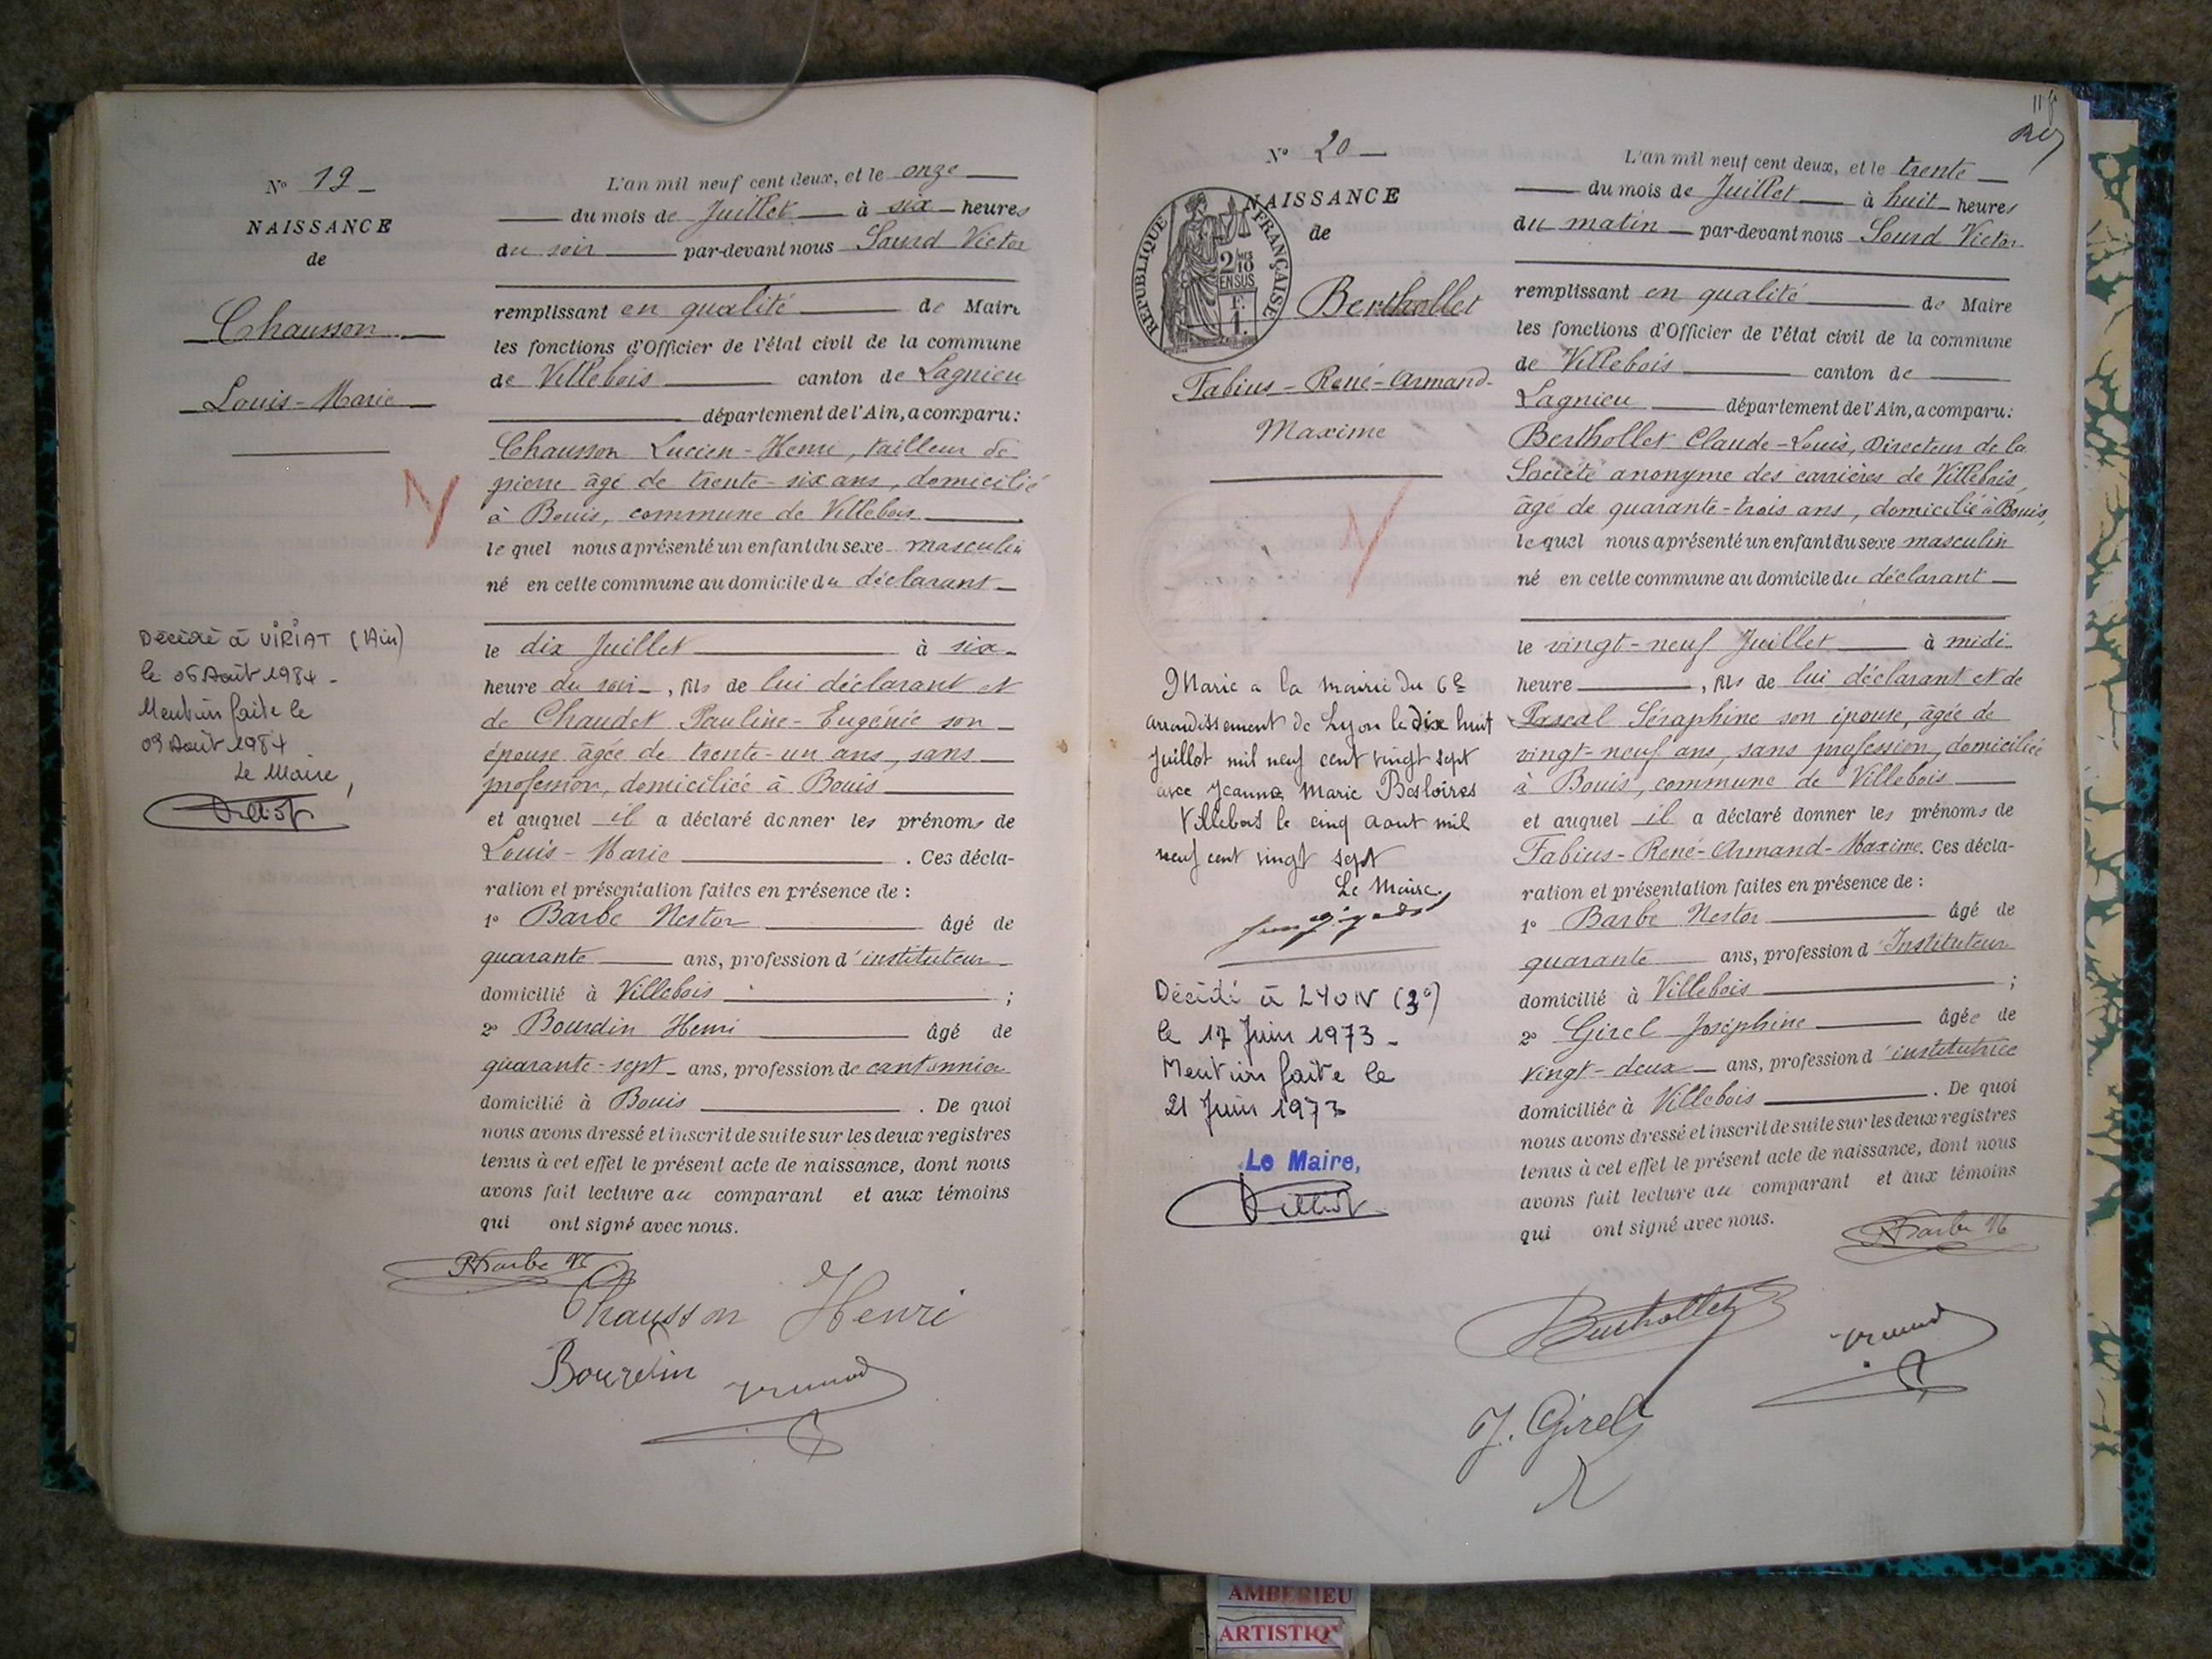 N° 19
NAISSANCE
de
Chausson
Louis-Marie
Décédé à VIRIAT (Ain)
le 06 Août 1984 -
Mention faite le
09 Août 1984
Le Maire,
L'an mil neuf cent deux, et le onze
du mois de Juillet à six heures
du soir par-devant nous Sourd Victor
remplissant en qualité de Maire
les fonctions d'Officier de l'état civil de la commune
de Villebois canton de Lagnieu
département de l'Ain, a comparu:
Chausson Lucien-Henri, tailleur de
pierre âgé de trente-six ans, domicilié
à Bouis, commune de Villebois
lequel nous a présenté un enfant du sexe masculin
né en cette commune au domicile du déclarant
le dix Juillet à six
heure du soir, fils de lui déclarant et
de Chaudet Pauline-Eugénie son
épouse âgée de trente-un ans, sans
profession, domiciliée à Bouis
et auquel il a déclaré donner les prénoms de
Louis-Marie. Ces décla-
ration et présentation faites en présence de :
1° Barbe Nestor âgé de
quarante ans, profession d'instituteur
domicilié à Villebois ;
2° Bourdin Henri âgé de
quarante-sept ans, profession de cantonnier
domicilié à Bouis. De quoi
nous avons dressé et inscrit de suite sur les deux registres
tenus à cet effet le présent acte de naissance, dont nous
avons fait lecture au comparant et aux témoins
qui ont signé avec nous.
Barbe N
Chausson Henri
Bourdin
N° 20
NAISSANCE
de
RÉPUBLIQUE FRANÇAISE
2/10
EN SUS
Berthollet
Fabius-René-Armand-
Maxime
Marié a la mairie du 6e
arrondissement de Lyon le dix huit
Juillet mil neuf cent vingt sept
avec Jeanne Marie Besloires
Villebois le cinq aout mil
neuf cent vingt sept
Le Maire
Décédé à LYON (3e)
le 17 Juin 1973 -
Mention faite le
21 Juin 1973
Le Maire,
L'an mil neuf cent deux, et le trente
du mois de Juillet à huit heures
du matin par-devant nous Sourd Victor
remplissant en qualité de Maire
les fonctions d'Officier de l'état civil de la commune
de Villebois canton de
Lagnieu département de l'Ain, a comparu:
Berthollet Claude-Louis, Directeur de la
Société anonyme des carrières de Villebois,
âgé de quarante-trois ans, domicilié à Bouis,
lequel nous a présenté un enfant du sexe masculin
né en cette commune au domicile du déclarant
le vingt-neuf Juillet à midi
heure, fils de lui déclarant et de
Pascal Séraphine son épouse, âgée de
vingt-neuf ans, sans profession, domiciliée
à Bouis, commune de Villebois
et auquel il a déclaré donner les prénoms de
Fabius-René-Armand-Maxime. Ces décla-
ration et présentation faites en présence de :
1° Barbe Nestor âgé de
quarante ans, profession d'Instituteur
domicilié à Villebois ;
2° Girel Joséphine âgée de
vingt-deux ans, profession d'institutrice
domiciliée à Villebois. De quoi
nous avons dressé et inscrit de suite sur les deux registres
tenus à cet effet le présent acte de naissance, dont nous
avons fait lecture au comparant et aux témoins
qui ont signé avec nous.
Barbe N
Berthollet
J. Girel
AMBERIEU
ARTISTIQ